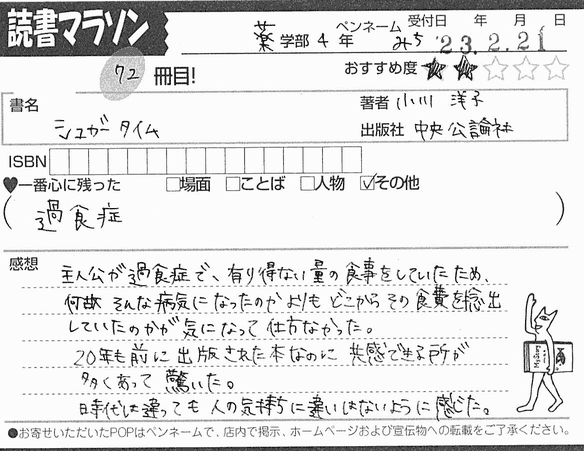 読書マラソン
薬 学部 4 年 ペンネーム みち 受付日 年 月 日 '23. 2. 21
72 冊目!
おすすめ度 ★★☆☆☆
書名 シュガータイム
著者 小川 洋子
出版社 中央公論社
ISBN
♥一番心に残った □場面 □ことば □人物 ☑その他
(過食症)
感想
主人公が過食症で、有り得ない量の食事をしていたため、
何故 そんな病気になったのかよりも どこからその食費を捻出
していたのかが気になって仕方なかった。
20年も前に出版された本なのに 共感できる所が
多くあって 驚いた。
時代は違っても 人の気持ちに違いはないように感じた。
●お寄せいただいたPOPはペンネームで、店内で掲示、ホームページおよび宣伝物への転載をご了承ください。